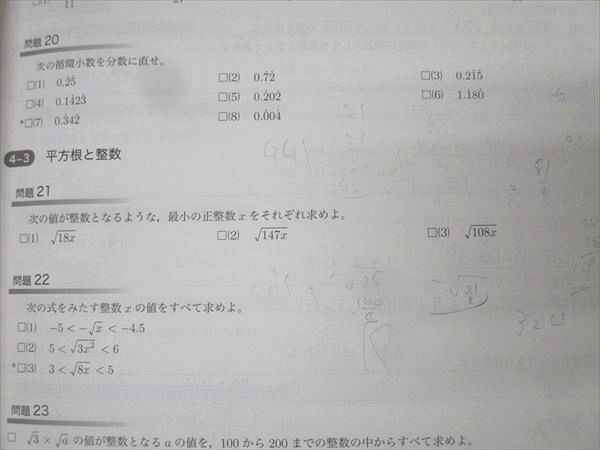 問題 20
次の循環小数を分数に直せ。
□(1) 0.2̇5̇ □(2) 0.7̇2̇ □(3) 0.21̇5̇
□(4) 0.14̇23̇ □(5) 0.2̇02̇ □(6) 1.1̇80̇
*□(7) 0.3̇42̇ □(8) 0.0̇04̇
4-3 平方根と整数
問題 21
次の値が整数となるような，最小の正整数 x をそれぞれ求めよ。
□(1) √18x □(2) √147x □(3) √108x
問題 22
次の式をみたす整数 x の値をすべて求めよ。
□(1) −5 < −√x < −4.5
□(2) 5 < √3x² < 6
*□(3) 3 < √8x < 5
問題 23
□ √3 × √a の値が整数となる a の値を，100 から 200 までの整数の中からすべて求めよ。
441
√25